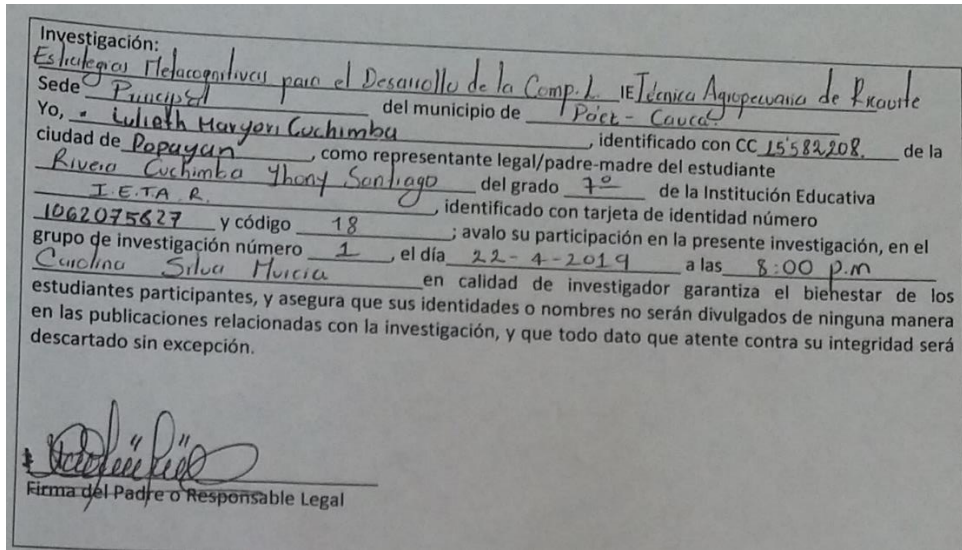 Investigación:
Estrategias Metacognitivas para el Desarrollo de la Comp. L. IE Técnica Agropecuaria de Ricaurte
Sede Principal del municipio de Páez - Cauca.
Yo, Lulieth Maryori Cuchimba, identificado con CC 15'582208. de la
ciudad de Popayan, como representante legal/padre-madre del estudiante
Rivera Cuchimba Yhony Santiago del grado 7º de la Institución Educativa
I.E.T.A.R., identificado con tarjeta de identidad número
1062075627 y código 18; avalo su participación en la presente investigación, en el
grupo de investigación número 1, el día 22-4-2019 a las 8:00 p.m
Carolina Silva Murcia en calidad de investigador garantiza el bienestar de los
estudiantes participantes, y asegura que sus identidades o nombres no serán divulgados de ninguna manera
en las publicaciones relacionadas con la investigación, y que todo dato que atente contra su integridad será
descartado sin excepción.
Firma del Padre o Responsable Legal